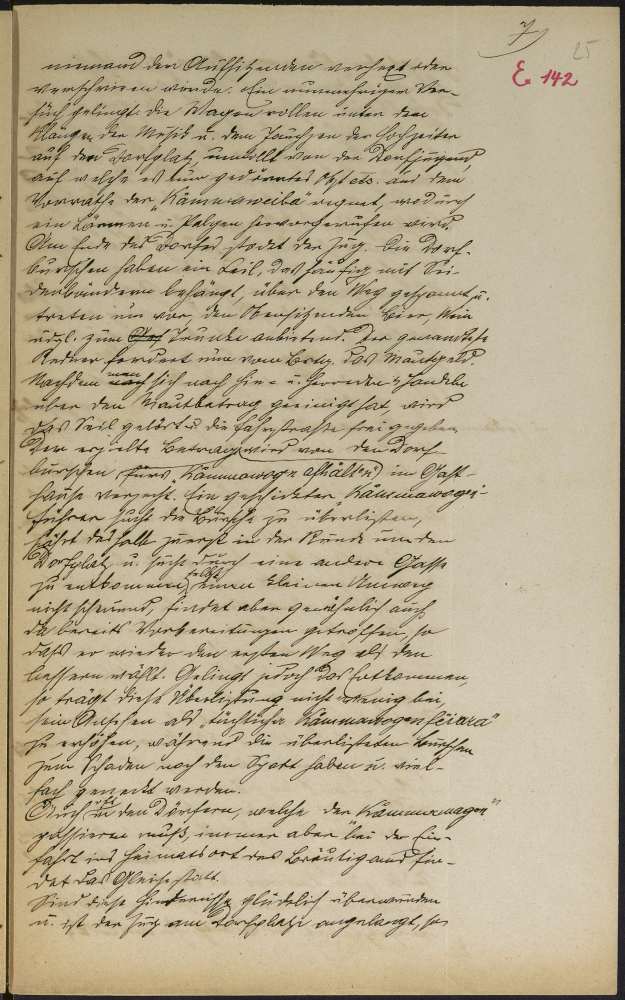 7)
25
E. 142
niemand der Aufsitzenden verhext oder
verschrieen würde. Ein nunmehriger Ver-
such gelingt die Wagen rollen unter den
Klängen der Musik u. dem Jauchzen der Hochzeiter
auf den Dorfplatz, umrollt von der Dorfjugend,
auf welche es nun gedörrtes Obst etc. aus dem
Vorrathe der "Kammaweiba" regnet, wodurch
ein Lärmen u. Balgen hervorgerufen wird.
Am Ende des Dorfes stockt der Zug. Die Dorf-
burschen haben ein Seil, das häufig mit Sei-
denbändern behängt, über den Weg gespannt u.
treten nun vor, den Obensitzenden Bier, Wein
udgl. zum Trunke anbietend. Der gewandteste
Redner fordert nun vom Bräutg. das Mautgeld.
Nachdem man sich nach Hin- u. Herreden u. Handeln
über den Mautbetrag geeinigt hat, wird
das Seil gelöst u. die Fahrstraße frei gegeben.
Der erzielte Betrag wird von den Dorf-
burschen (fürs "Kammawogn afhålten") im Gast-
hause verzecht. Ein geschickter Kammawogn-
führer sucht die Bursche zu überlisten,
fährt deshalb zuerst in der Runde um den
Dorfplatz u. sucht durch eine andere Gasse
zu entkommen, selbst einen kleinen Umweg
nicht scheuend, findet aber gewöhnlich auch
da bereits Vorbereitungen getroffen, so
daß er wieder den ersten Weg als den
bessern wählt. Gelingt jedoch das Fortkommen,
so trägt diese Überlistung nicht wenig bei,
sein Ansehen als "tüchticha Kammawogenféiara"
zu erhöhen, während die überlisteten Burschen
zum Schaden noch den Spott haben u. viel-
fach geneckt werden.
Auch in den Dörfern, welche der "Kammerwagen"
passieren muß, immer aber bei der Ein-
fahrt ins Heimatsort des Bräutigams fin-
det das Gleiche statt.
Sind diese Hindernisse glücklich überwunden
u. ist der Zug am Dorfplatze angelangt, so